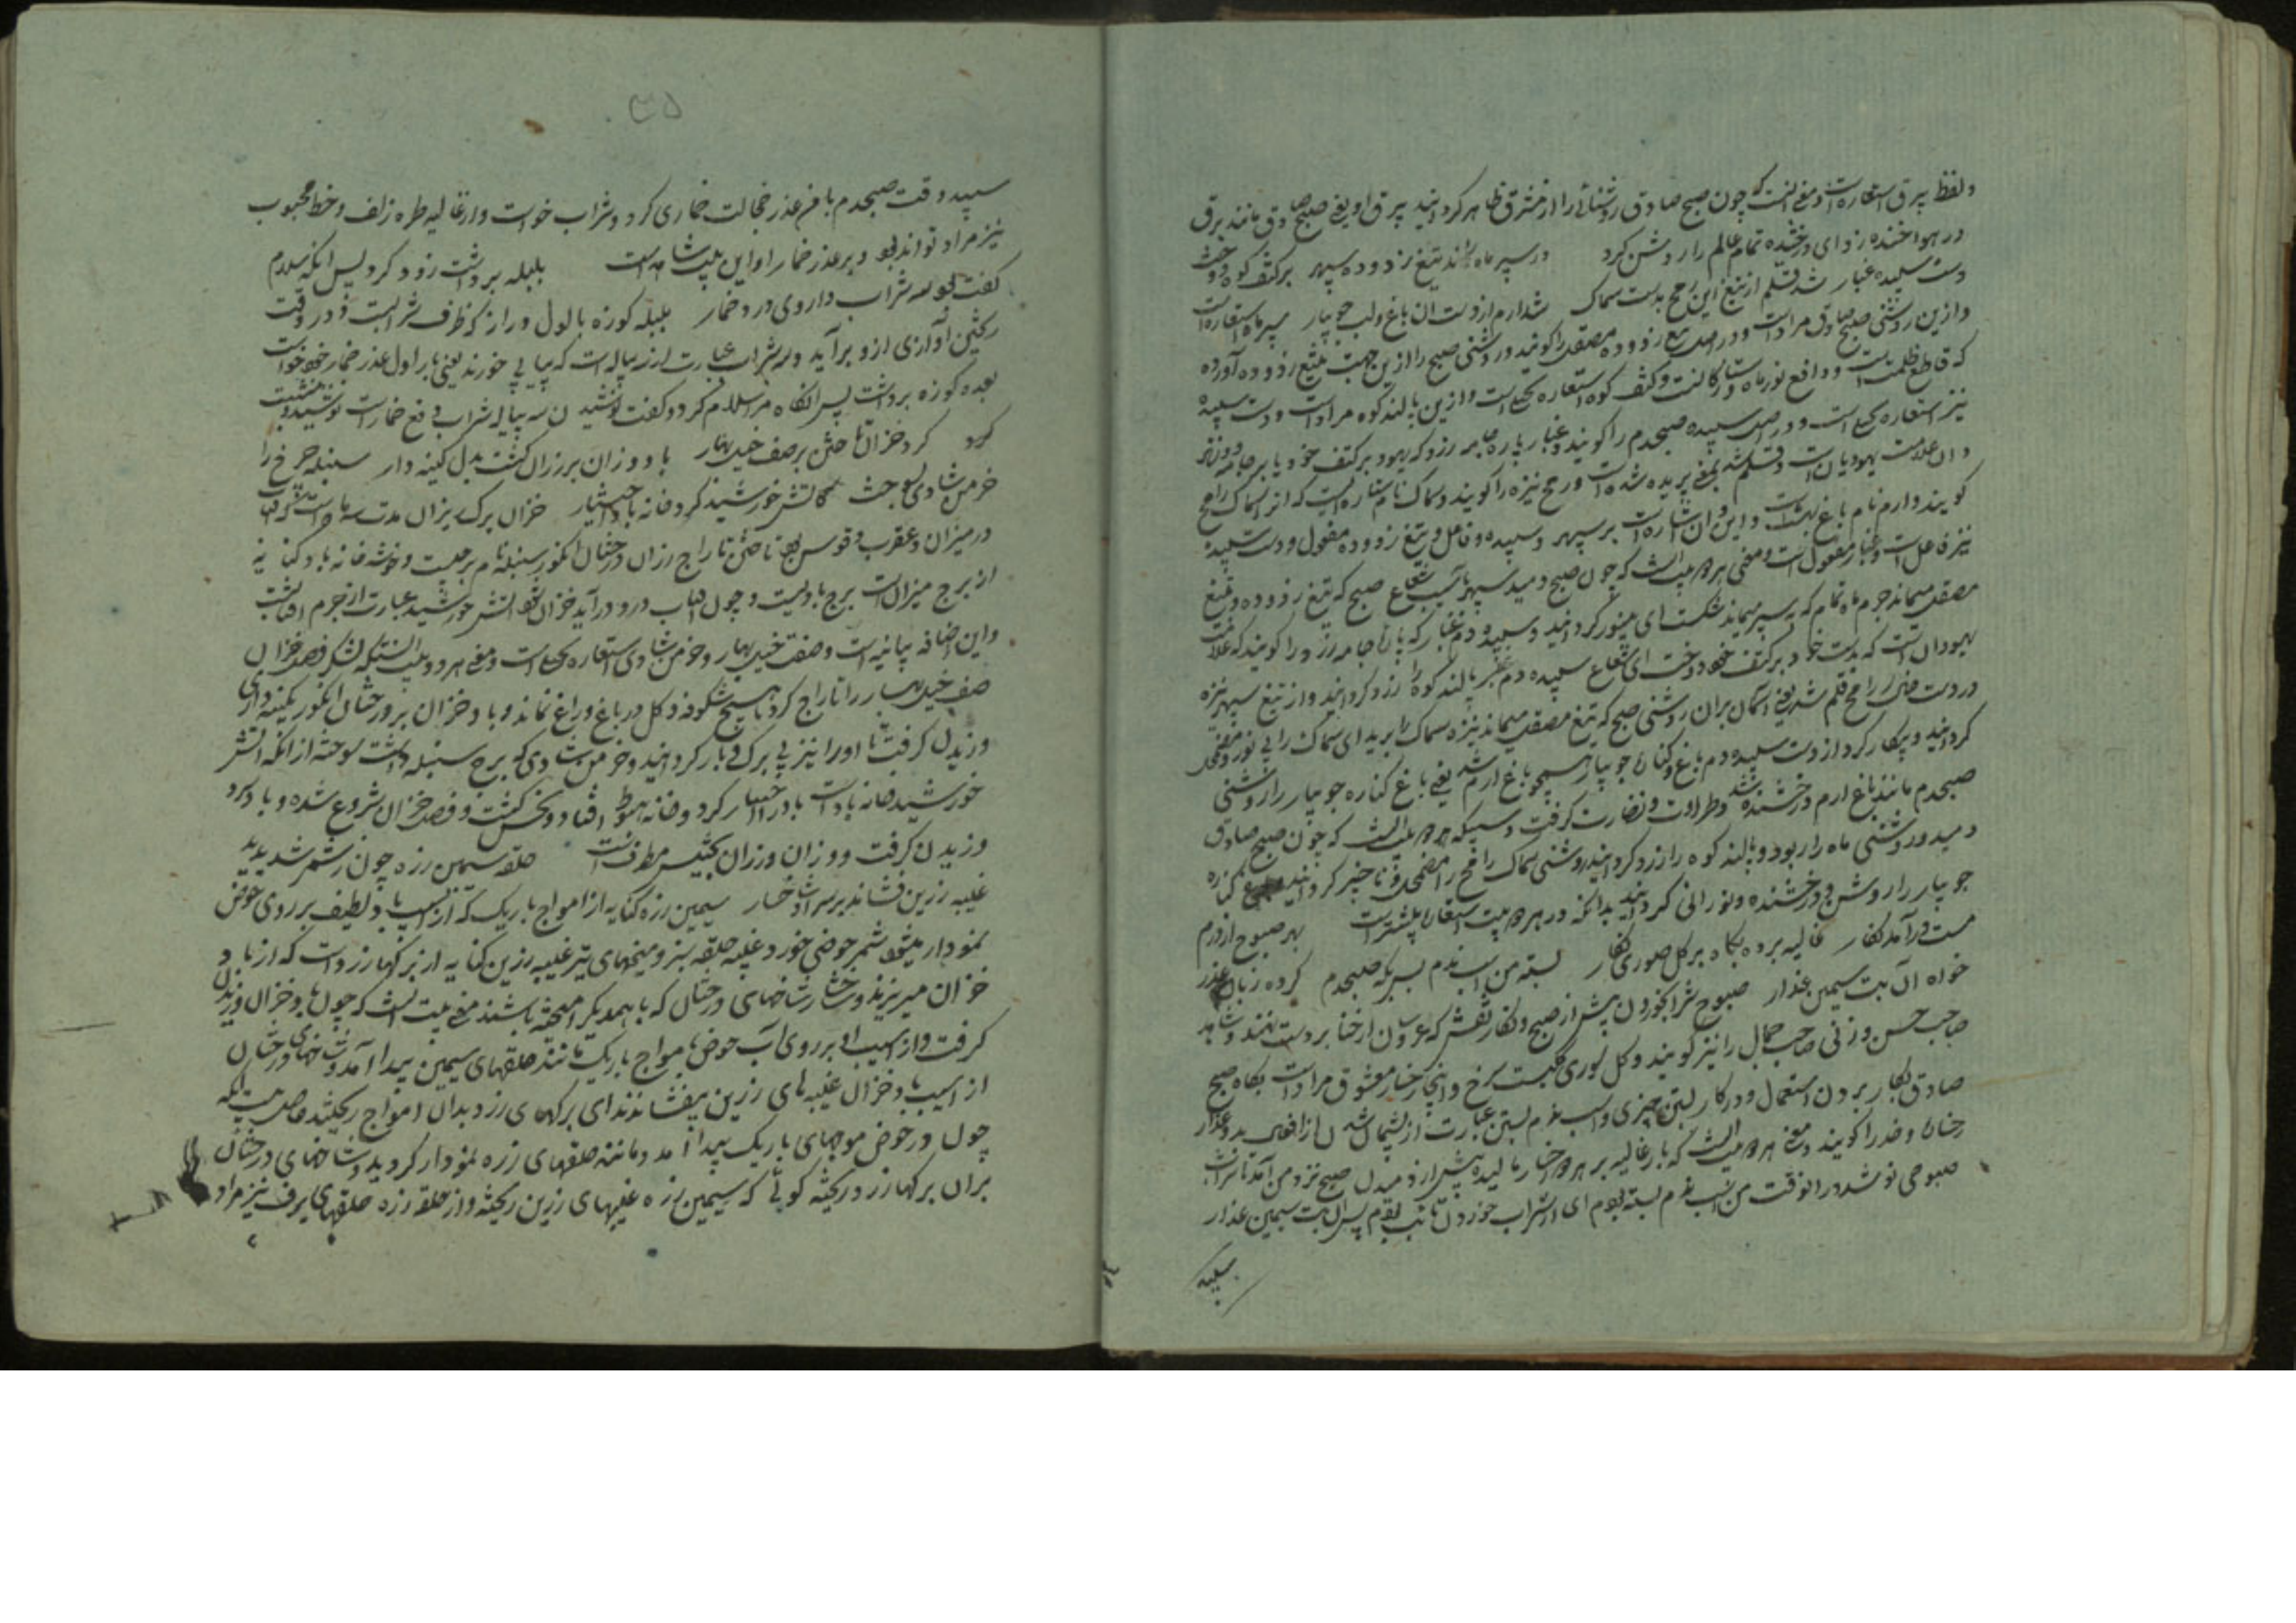 ولفظ بیرق استعاره است ومعنی انست که چون صبح صادق روشنائی را از مشرق ظاهر کردانید بیرق او یعنی صبح صادق مانند برق
در هوا خنده زد ای درخشنده تمام عالم را روشن کرد در سپر ماه راند تیغ زدوده سپهر بر کتف کوه دوخت
دست سپیده غبار شد قلم از تیغ این رمح بدست سماک شد ارم از دست ان باغ ولب جویبار سپر ماه استعاره است
وازین روشنی صبح صادق مراد است ودر اصل تیغ زدوده مصقل را کویند وروشنی صبح را ازین جهت بتیغ زدوده آورده
که قاطع ظلمت است ودافع نور ماه وکتف کوه استعاره است وازین بالند کوه مراد است ودست سپیده
نیز استعاره است ودر اصل سپیده صبحدم را کویند وغبار پاره جامه زرد که یهود بر کتف خود یا بر جامه دوزند
وان علامت یهودیان است وقلم شد بمعنی بریده شد است ورمح نیزه را کویند وسماک نام ستاره ایست که انرا سماک رامح
کویند وارم نام باغ بهشت است واین وان اشاره است بر سپهر وسپیده وفاعل وتیغ زدوده مفعول ودست سپیده
نیز فاعل است وغبار مفعول است ومعنی هر دو بیت انست که چون صبح دمید سپهر بآسیب شعاع صبح که تیغ زدوده وتیغ
مصقل میماند جرم ماه تمام که بسپر میماند شکست ای منور کردانید وسپیده دم غبار که پاره جامه زرد را کویند که علامت
یهودان است که بدست خود بر کتف خود دوخت ای شعاع سپیده دم بالند کوه را زرد کردانید واز تیغ سپهر نیزه
در دست رامح قلم شد یعنی آسمان بران روشنی صبح که تیغ مصقل میماند نیزه سماک را برید ای سماک را بی نور ومضمحل
کردانید وپیکار کرد از دست سپیده دم باغ وکنار جویبار همچو باغ ارم شد یعنی باغ کناره جویبار را روشنی
صبحدم مانند باغ ارم درخشنده شد وطراوت ونضارت کرفت هر دو بیت انست که چون صبح صادق
دمید وروشنی ماه را ربود وبالند کوه را زرد کردانید وروشنی سماک رامح را مضمحل وناچیز کردانید وباغ کناره
جویبار را روشن ودرخشنده ونورانی کردانید بدانکه در هر دو بیت استعارات بیشتر است بهر صبوح از درم
مست درآمد نکار غالیه برده بکاه بر کل صوری نکار بسته من اسب ندم بسر که صبحدم کرده زبان عذر
خواه آن بت سیمین عذار صبوح شراب خوردن پیش از صبح ونکار نقش که عروسان از حنا بر دست نهند وشاهد
صاحب حسن وزنی صاحب جمال را نیز کویند وکل سوری کلیست سرخ واینجا رخسار معشوق مراد است بکاه صبح
صادق بکار بردن استعمال ودر کار بستن چیزی واسب ندم بستن عبارت از پشیمان شدن از افعال بد وعذار
رخسار وخد را کویند ومعنی هر دو بیت انست که یار غالیه بر هر دو رخسار مالیده پیش از دمیدن صبح نزد من آمد تا شراب
صبوحی نوشد در انوقت من اسب ندم بسته بودم ای از شراب خوردن تائب بودم پس ان بت سیمین عذار
سپیده
۳۵
سپیده وقت صبحدم با من عذر خجالت خماری کرد وشراب خواست واز غالیه طره زلف وخط محبوب
نیز مراد تواند بود وبر عذر خمار او این بیت شاهد است بلبله برداشت زود کرد پس انکه سلام
کفت شراب داروی درد خمار بلبله کوزه بالوله دراز که ظرف شراب است ودر وقت
ریختن آوازی ازو برآید وسه شراب عبارت از سه پیاله است که پیاپی خورند یعنی یار اول عذر خمار خود خواست
بعده کوزه برداشت پس انکاه مرا سلام کرد وکفت نوشیدن سه پیاله شراب دفع خمار است نوشید ونشست
کرد کرد خزان تاختن بر صف خیل بهار باد وزان بر رزان کشت بدل کینه دار سنبله چرخ را
خرمن شادی بسوخت کاتش خورشید کرد خانه باد اختیار خزان برک ریزان مدت سه ماه است که آفتاب
در میزان وعقرب وقوس بود تاختن تاراج رزان درختان انکور سنبله نام برجیست وخوشه خانه باد کنایه
از برج میزان است برج بادیست وچون آفتاب درو درآید خزان شود آتش خورشید عبارت از جرم آفتابست
واین اضافه بیانیه است وصف خیل بهار وخرمن شادی استعاره است ومعنی هر دو بیت انستکه لشکر فصل خزان
صف خیل بهار را تاراج کرد تا هیچ شکوفه وکل در باغ وراغ نماند وباد خزان بر درختان انکور بکینه داری
وزیدن کرفت تا اورا نیز بی برک وبار کردانید وخرمن شادی که برج سنبله داشت سوخته از انکه آتش
خورشید خانه باد است باد را اختیار کرد وخانه هبوط افتاد ونحس کشت وفصل خزان شروع شده وباد سرد
وزیدن کرفت ووزان ورزان تجنیس مطرف است حلقه سیمین زره چون ز شمر شد پدید
غیبه زرین فشاند بر سر او شاخسار سیمین زره کنایه از امواج باریک که از آسیب باد لطیف بر روی حوض
نمودار میشود شمر حوض خورد وغیبه حلقه سپر ومیخهای تیر غیبه زرین کنایه از برکهاء زرد است که از باد
خزان میریزند وشاخسار شاخهای درختان که باهمدیکر آمیخته باشند معنی بیت انست که چون باد خزان وزیدن
کرفت واز آسیب او بر روی آب حوض امواج باریک مانند حلقهای سیمین پیدا آمد وشاخهای درختان
از آسیب باد خزان غیبه های زرین بیفشاندند ای برکهای زرد بدان امواج ریختند حاصل بیت انکه
چون در حوض موجهای باریک پیدا آمد ومانند حلقهای زره نمودار کردید وشاخهای درختان
بران برکهاء زرد ریخته کوئی که سیمین زره غیبهای زرین ریخته واز حلقه زره حلقهای برف نیز مراد